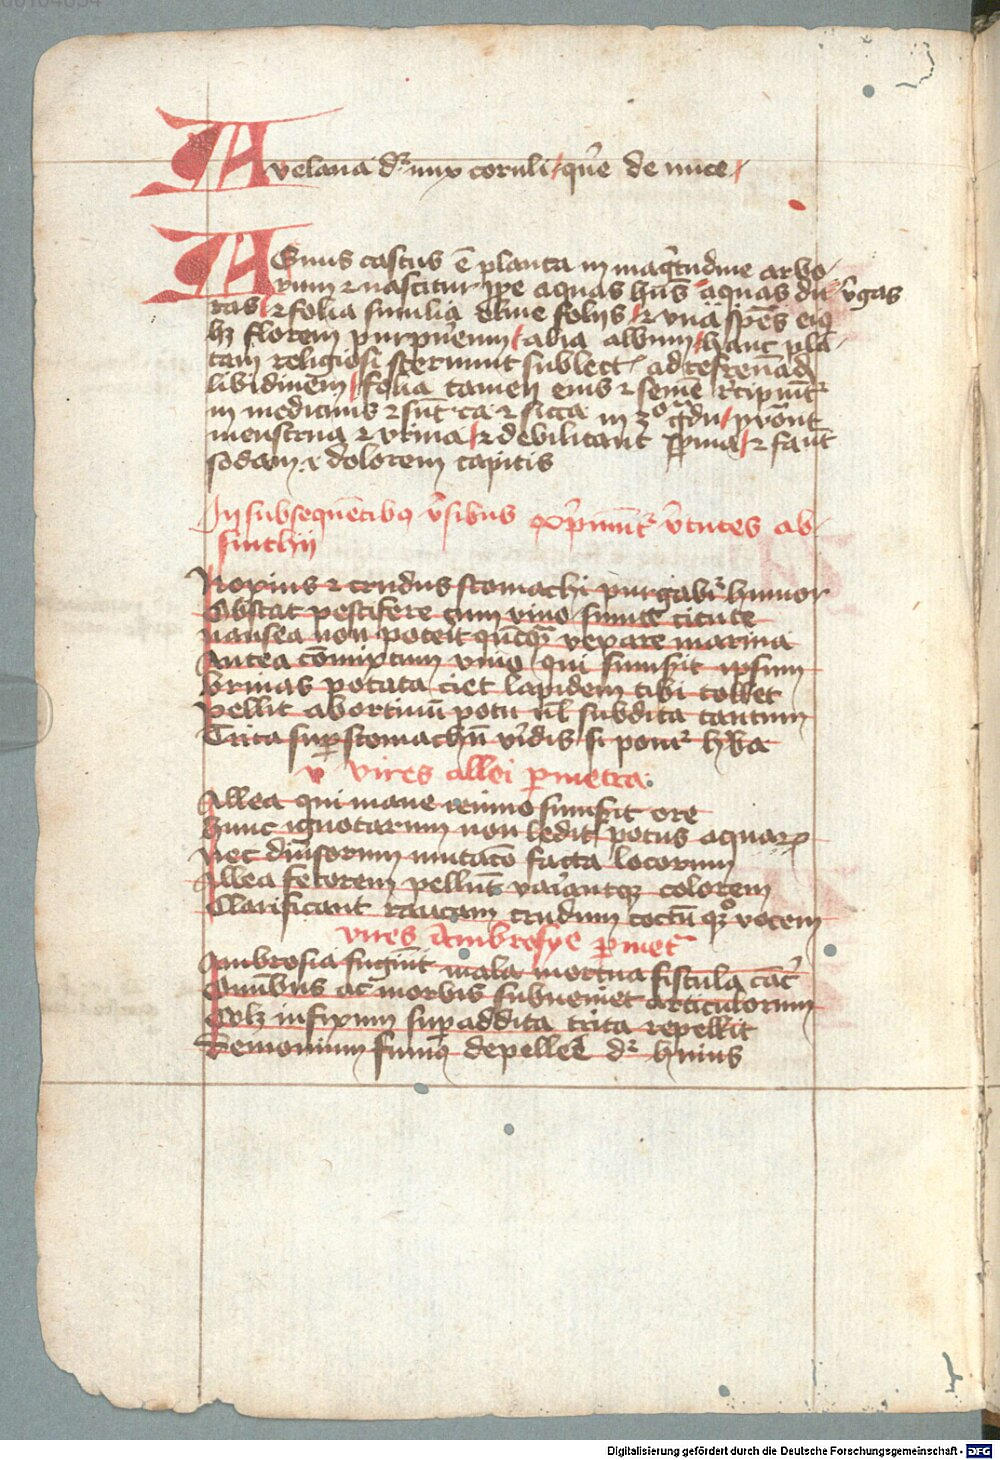 Avelana dr nux coruli / quere de nuce /
AGnus castus e planta in magnitudine arbo
rum et nascitur prope aquas habens aquas duras virgas
ras / et folia similia olive foliis / et una species eius
habet florem purpureum / alia album / hanc plan
tam religiosi sternunt sub lecto ad refrenandam
libidinem / folia tamen eius et semen recipiuntur
in medicinis et sunt ca et sicca in 3o gradu / provocant
menstrua et urina / et debilitant sperma / et faciunt
sodam et dolorem capitis
In subsequentibus versibus exprimuntur virtutes ab
sinthii
Noxius et crudus stomachi purgabitur humor
Obstat pestifere cum vino sumte cicute
nausea non poterit quemquam vexare marina
Antea commixtum vino qui sumsit ipsum
Urinas potata ciet lapidem tibi tollet
Pellit abortivum potu vel subdita tantum
Trita super stomachum viridis si ponitur herba
v vires allei per metra
Allea qui mane ieiuno sumsit ore
hunc ignotarum non ledit potus aquarum
nec diversorum mutatio facta locorum
Allea fetorem pellunt variantque colorem
Clarificant raucam crudum coctumque vocem
vires Ambrosye per metra
Ambrosia fugiunt mala mortua fistula cancer
Omnibus ac morbis subveniet articulorum
infixum superaddita trita repellit
Demonium fumus depellere dr huius
Digitalisierung gefördert durch die Deutsche Forschungsgemeinschaft - DFG